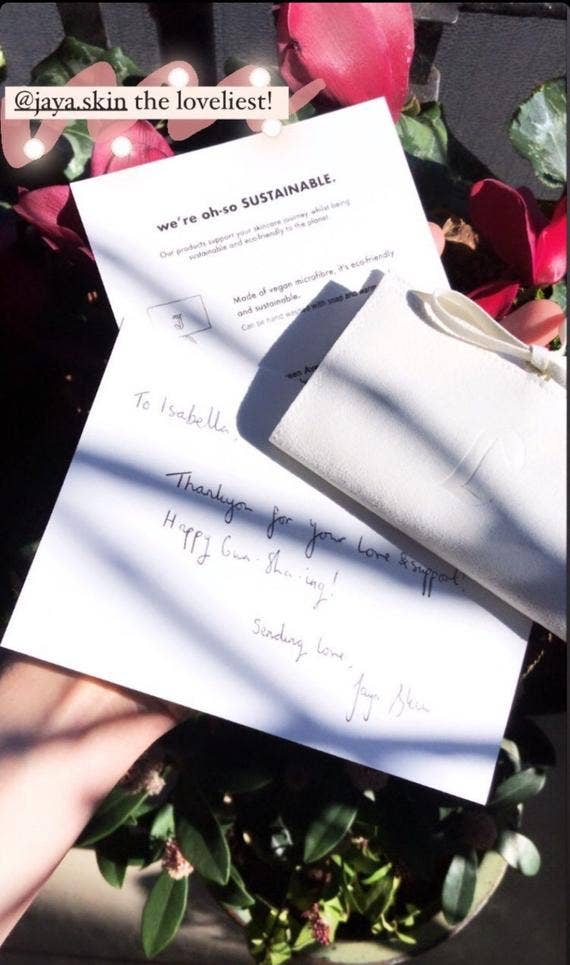 @jaya.skin the loveliest!
we're oh-so SUSTAINABLE.
Our products support your skincare journey whilst being
sustainable and eco-friendly to the planet
Made of vegan microfibre, it's ecofriendly
and sustainable.
Can be hand washed with soap and warm
To Isabella,
Thankyou for your love & support!
Happy Gua-Sha-ing!
Sending love,
Jaya Skin